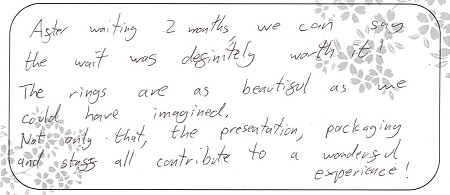 After waiting 2 months, we can say
the wait was definitely worth it!
The rings are as beautiful as we
could have imagined.
Not only that, the presentation, packaging
and staff all contribute to a wonderful
experience!